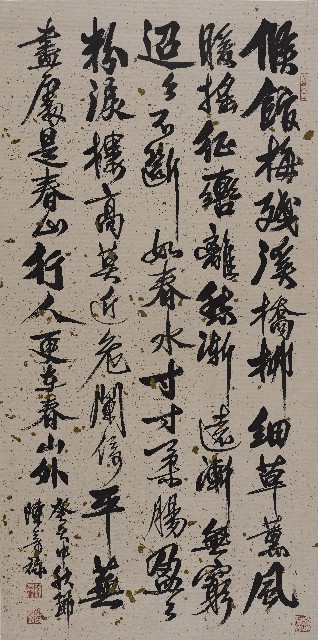 候館梅殘溪橋柳細草薰風
暖搖征轡離愁漸遠漸無窮
迢〻不斷如春水寸寸柔腸盈〻
粉淚樓高莫近危闌倚平蕪
盡處是春山行人更在春山外
癸亥中秋節
陳